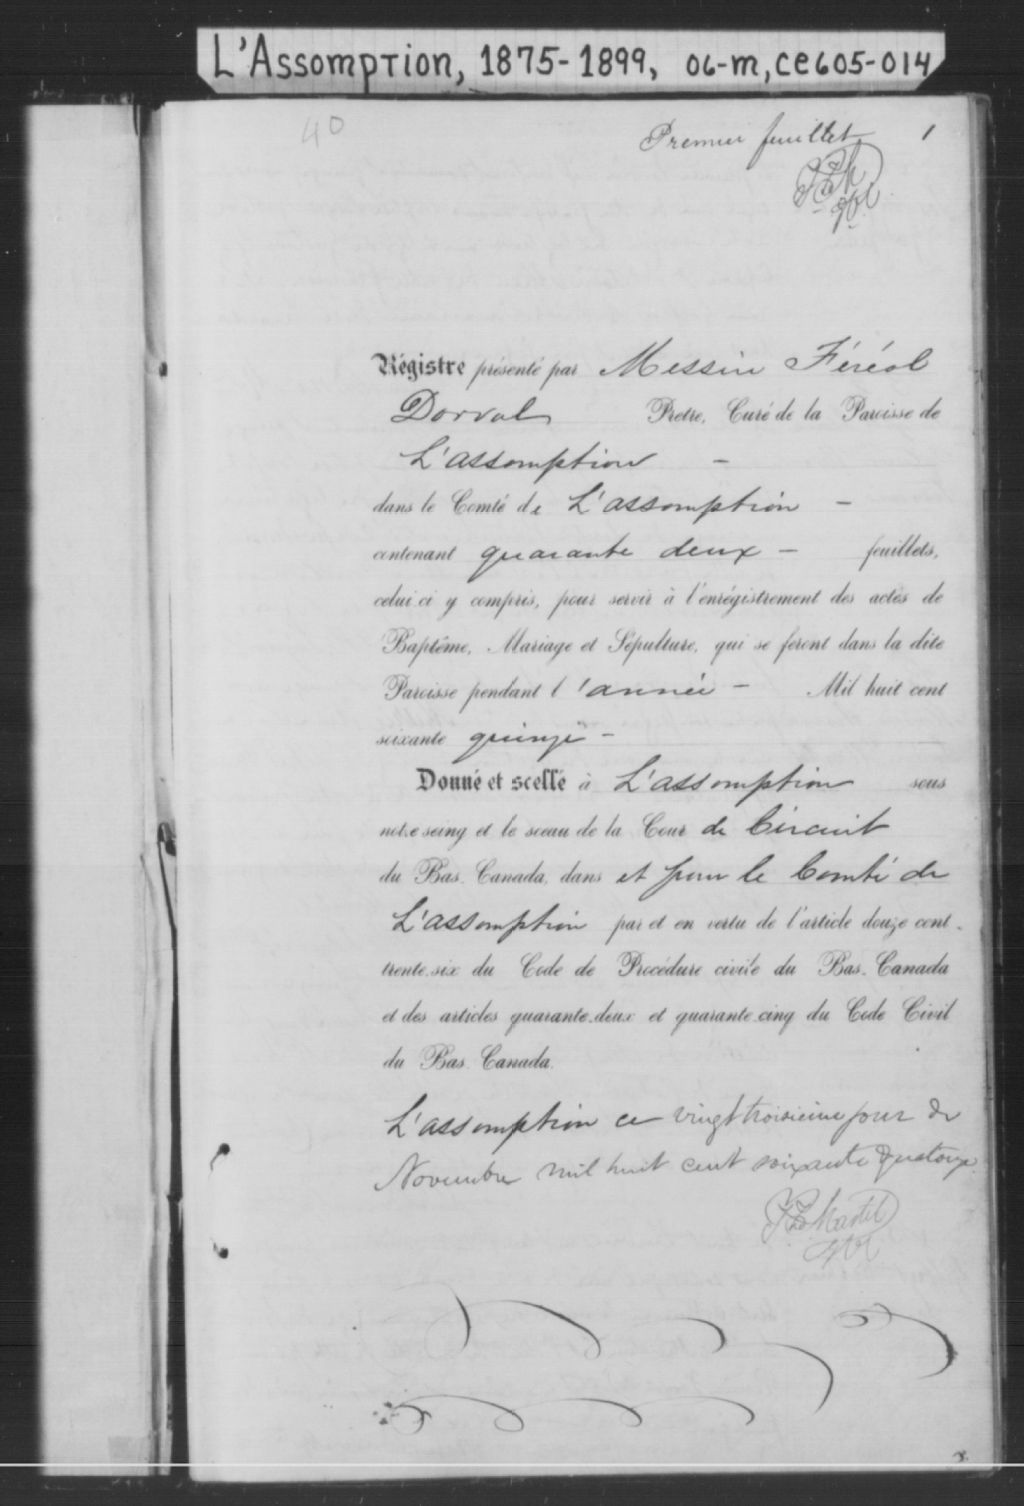 L'Assomption, 1875-1899, 06-m, ce605-014
40
Premier feuillet 1
Régistre présenté par Messire Féréol
Dorval Pretre, Curé de la Paroisse de
L'assomption -
dans le Comté de L'assomption -
contenant quarante deux - feuillets,
celui-ci y compris, pour servir à l'enrégistrement des actes de
Baptême, Mariage et Sépulture, qui se feront dans la dite
Paroisse pendant l'année - Mil huit cent
soixante quinze -
Donné et scellé à L'assomption sous
notre seing et le sceau de la Cour de Circuit
du Bas-Canada, dans et pour le Comté de
L'assomption par et en vertu de l'article douze cent-
trente-six du Code de Procédure civile du Bas-Canada
et des articles quarante-deux et quarante-cinq du Code Civil
du Bas-Canada.
L'assomption ce vingt troisième jour de
Novembre mil huit cent soixante quatorze.
Martel